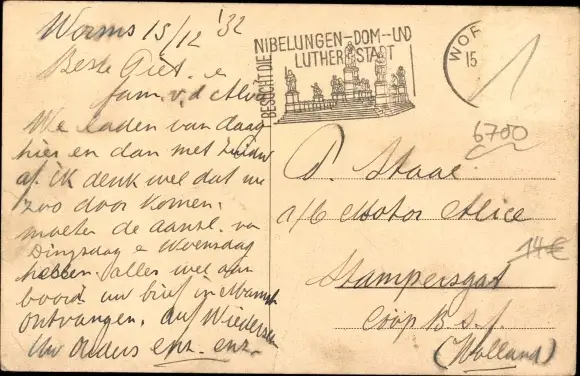 Worms 15/12 '32
Beste Piet. e
fam. v.d.
We laden van daag
hier en dan met
af. ik denk wel dat we
zoo door komen.
moeten de aansl. van
Dingsdag e Woensdag
hebben. alles wel aan
boord uw brief in
ontvangen. auf Wiedersehn
Uw Ouders enz. enz.
BESUCHT DIE
NIBELUNGEN-DOM-UND
LUTHERSTADT
WOR
15
6700
P. Staal
a/b Motor Alice
14€
Stampersgat
Coöp B.s.f.
(Holland)